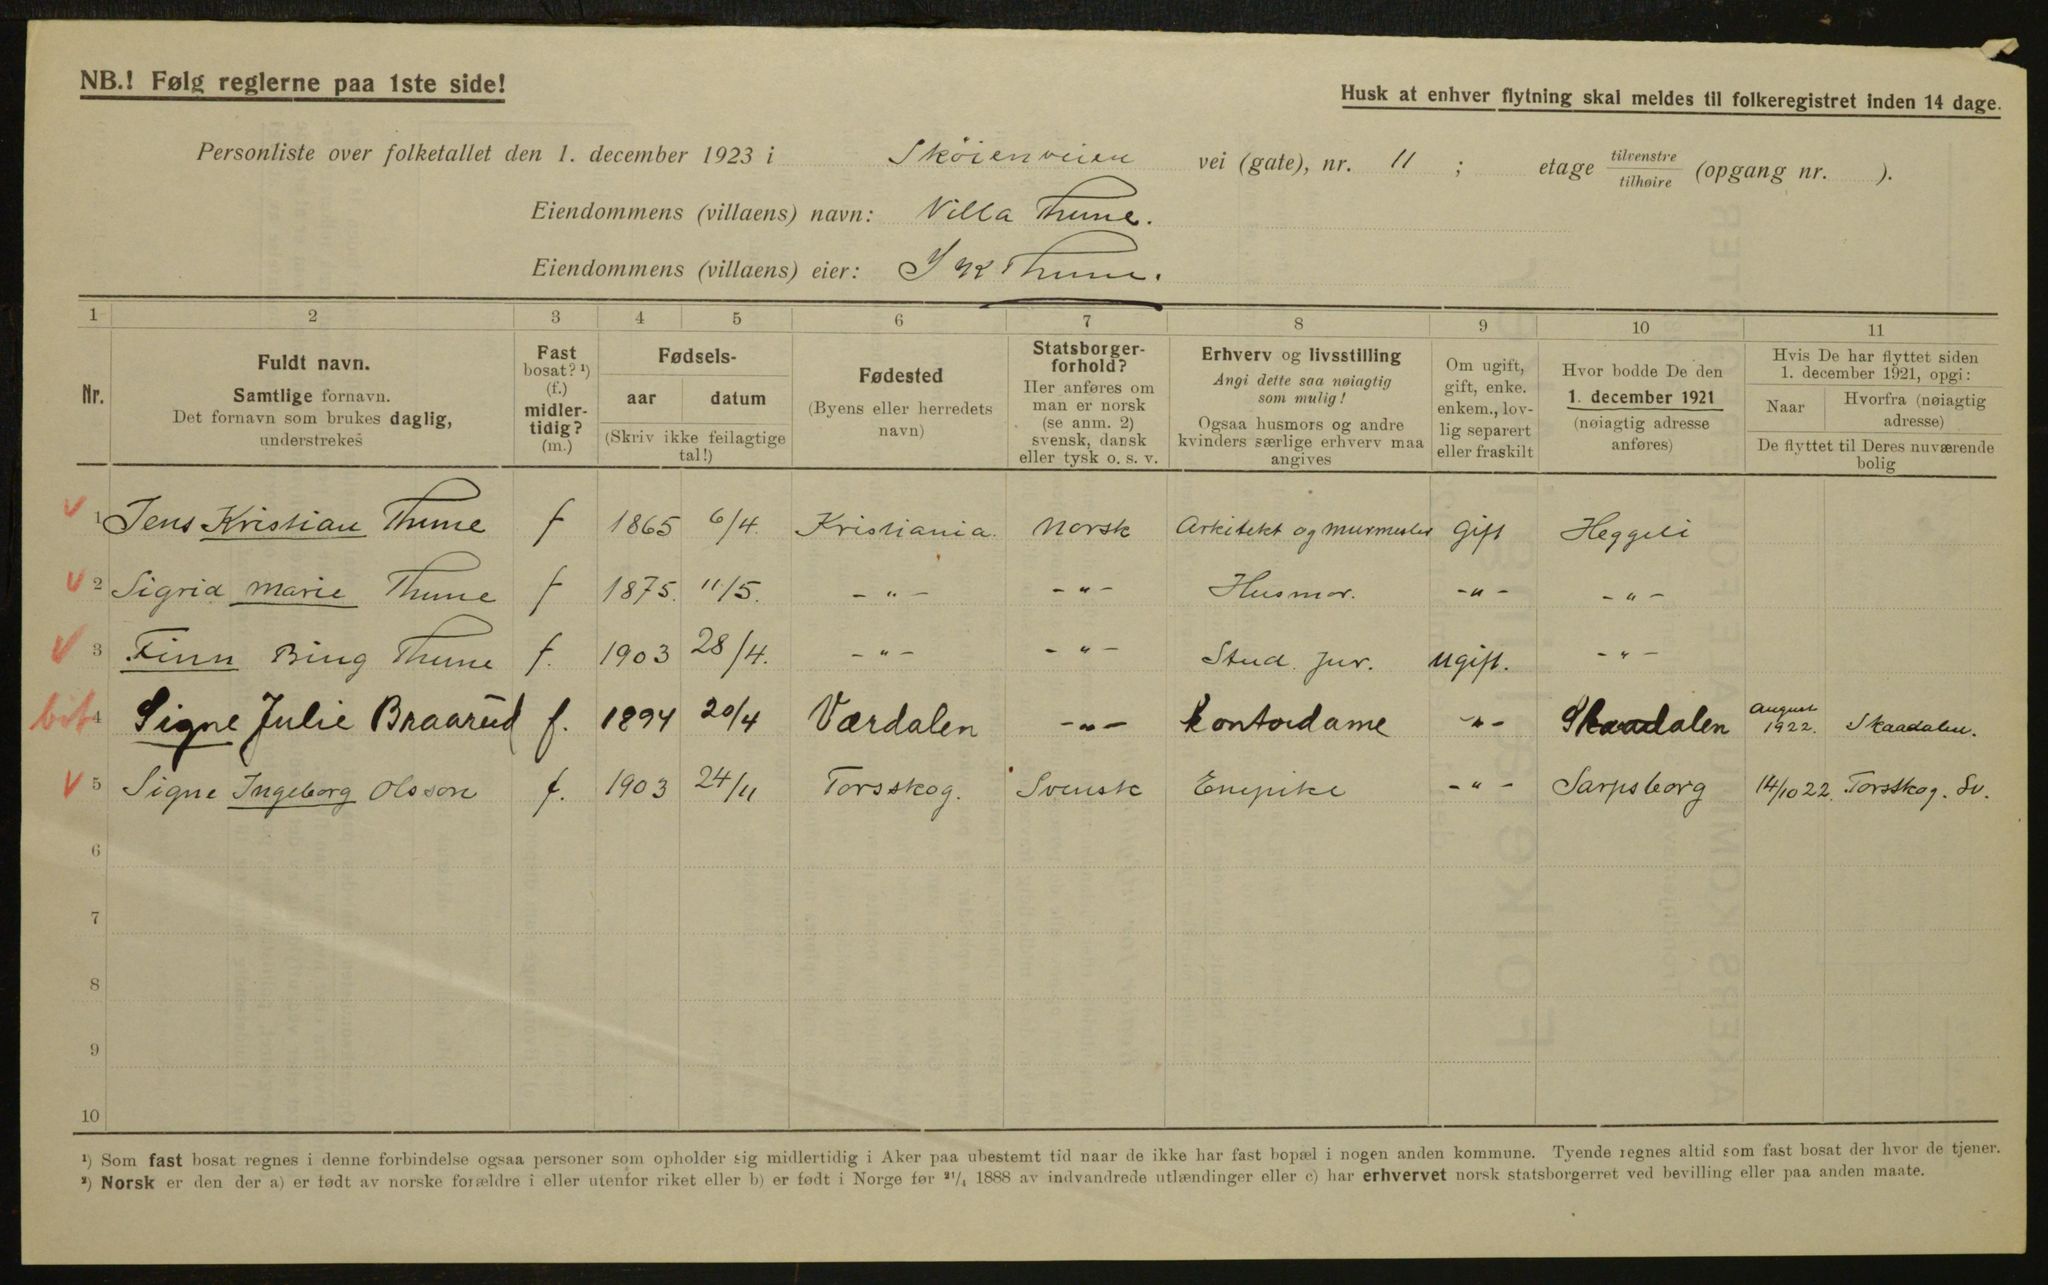 NB.! Følg reglerne paa 1ste side!
Husk at enhver flytning skal meldes til folkeregistret inden 14 dage.
Personliste over folketallet den 1. december 1923 i Skøienveien vei (gate), nr. 11 ; etage tilvenstre/tilhøire (opgang nr. ).
Eiendommens (villaens) navn: Villa Thune.
Eiendommens (villaens) eier: J K Thune.
1 2 3 4 5 6 7 8 9 10 11
Nr.
Fuldt navn.
Samtlige fornavn.
Det fornavn som brukes daglig,
understrekes
Fast
bosat? ¹)
(f.)
midler-
tidig?
(m.)
Fødsels-
aar datum
(Skriv ikke feilagtige
tal!)
Fødested
(Byens eller herredets
navn)
Statsborger-
forhold?
Her anføres om
man er norsk
(se anm. 2)
svensk, dansk
eller tysk o. s. v.
Erhverv og livsstilling
Angi dette saa nøiagtig
som mulig!
Ogsaa husmors og andre
kvinders særlige erhverv maa
angives
Om ugift,
gift, enke.
enkem., lov-
lig separert
eller fraskilt
Hvor bodde De den
1. december 1921
(nøiagtig adresse
anføres)
Hvis De har flyttet siden
1. december 1921, opgi:
Naar
Hvorfra (nøiagtig
adresse)
De flyttet til Deres nuværende
bolig
1 Jens Kristian Thune f 1865 6/4. Kristiania. Norsk Arkitekt og murmester Gift Heggeli
2 Sigrid Marie Thune f 1875. 11/5. -"- -"- Husmor. -"- -"-
3 Finn Bing Thune f. 1903 28/4. -"- -"- Stud. jur. ugift. -"-
4 Signe Julie Braarud f. 1894 20/4 Værdalen -"- Kontordame -"- Skaadalen august 1922. Skaadalen.
5 Signe Ingeborg Olsson f. 1903 24/11 Torsskog. Svensk Enepike -"- Sarpsborg 14/10 22. Torsskog. Sv.
6
7
8
9
10
¹) Som fast bosat regnes i denne forbindelse ogsaa personer som opholder sig midlertidig i Aker paa ubestemt tid naar de ikke har fast bopæl i nogen anden kommune. Tyende regnes altid som fast bosat der hvor de tjener.
²) Norsk er den der a) er født av norske forældre i eller utenfor riket eller b) er født i Norge før 21/4 1888 av indvandrede utlændinger eller c) har erhvervet norsk statsborgerret ved bevilling eller paa anden maate.